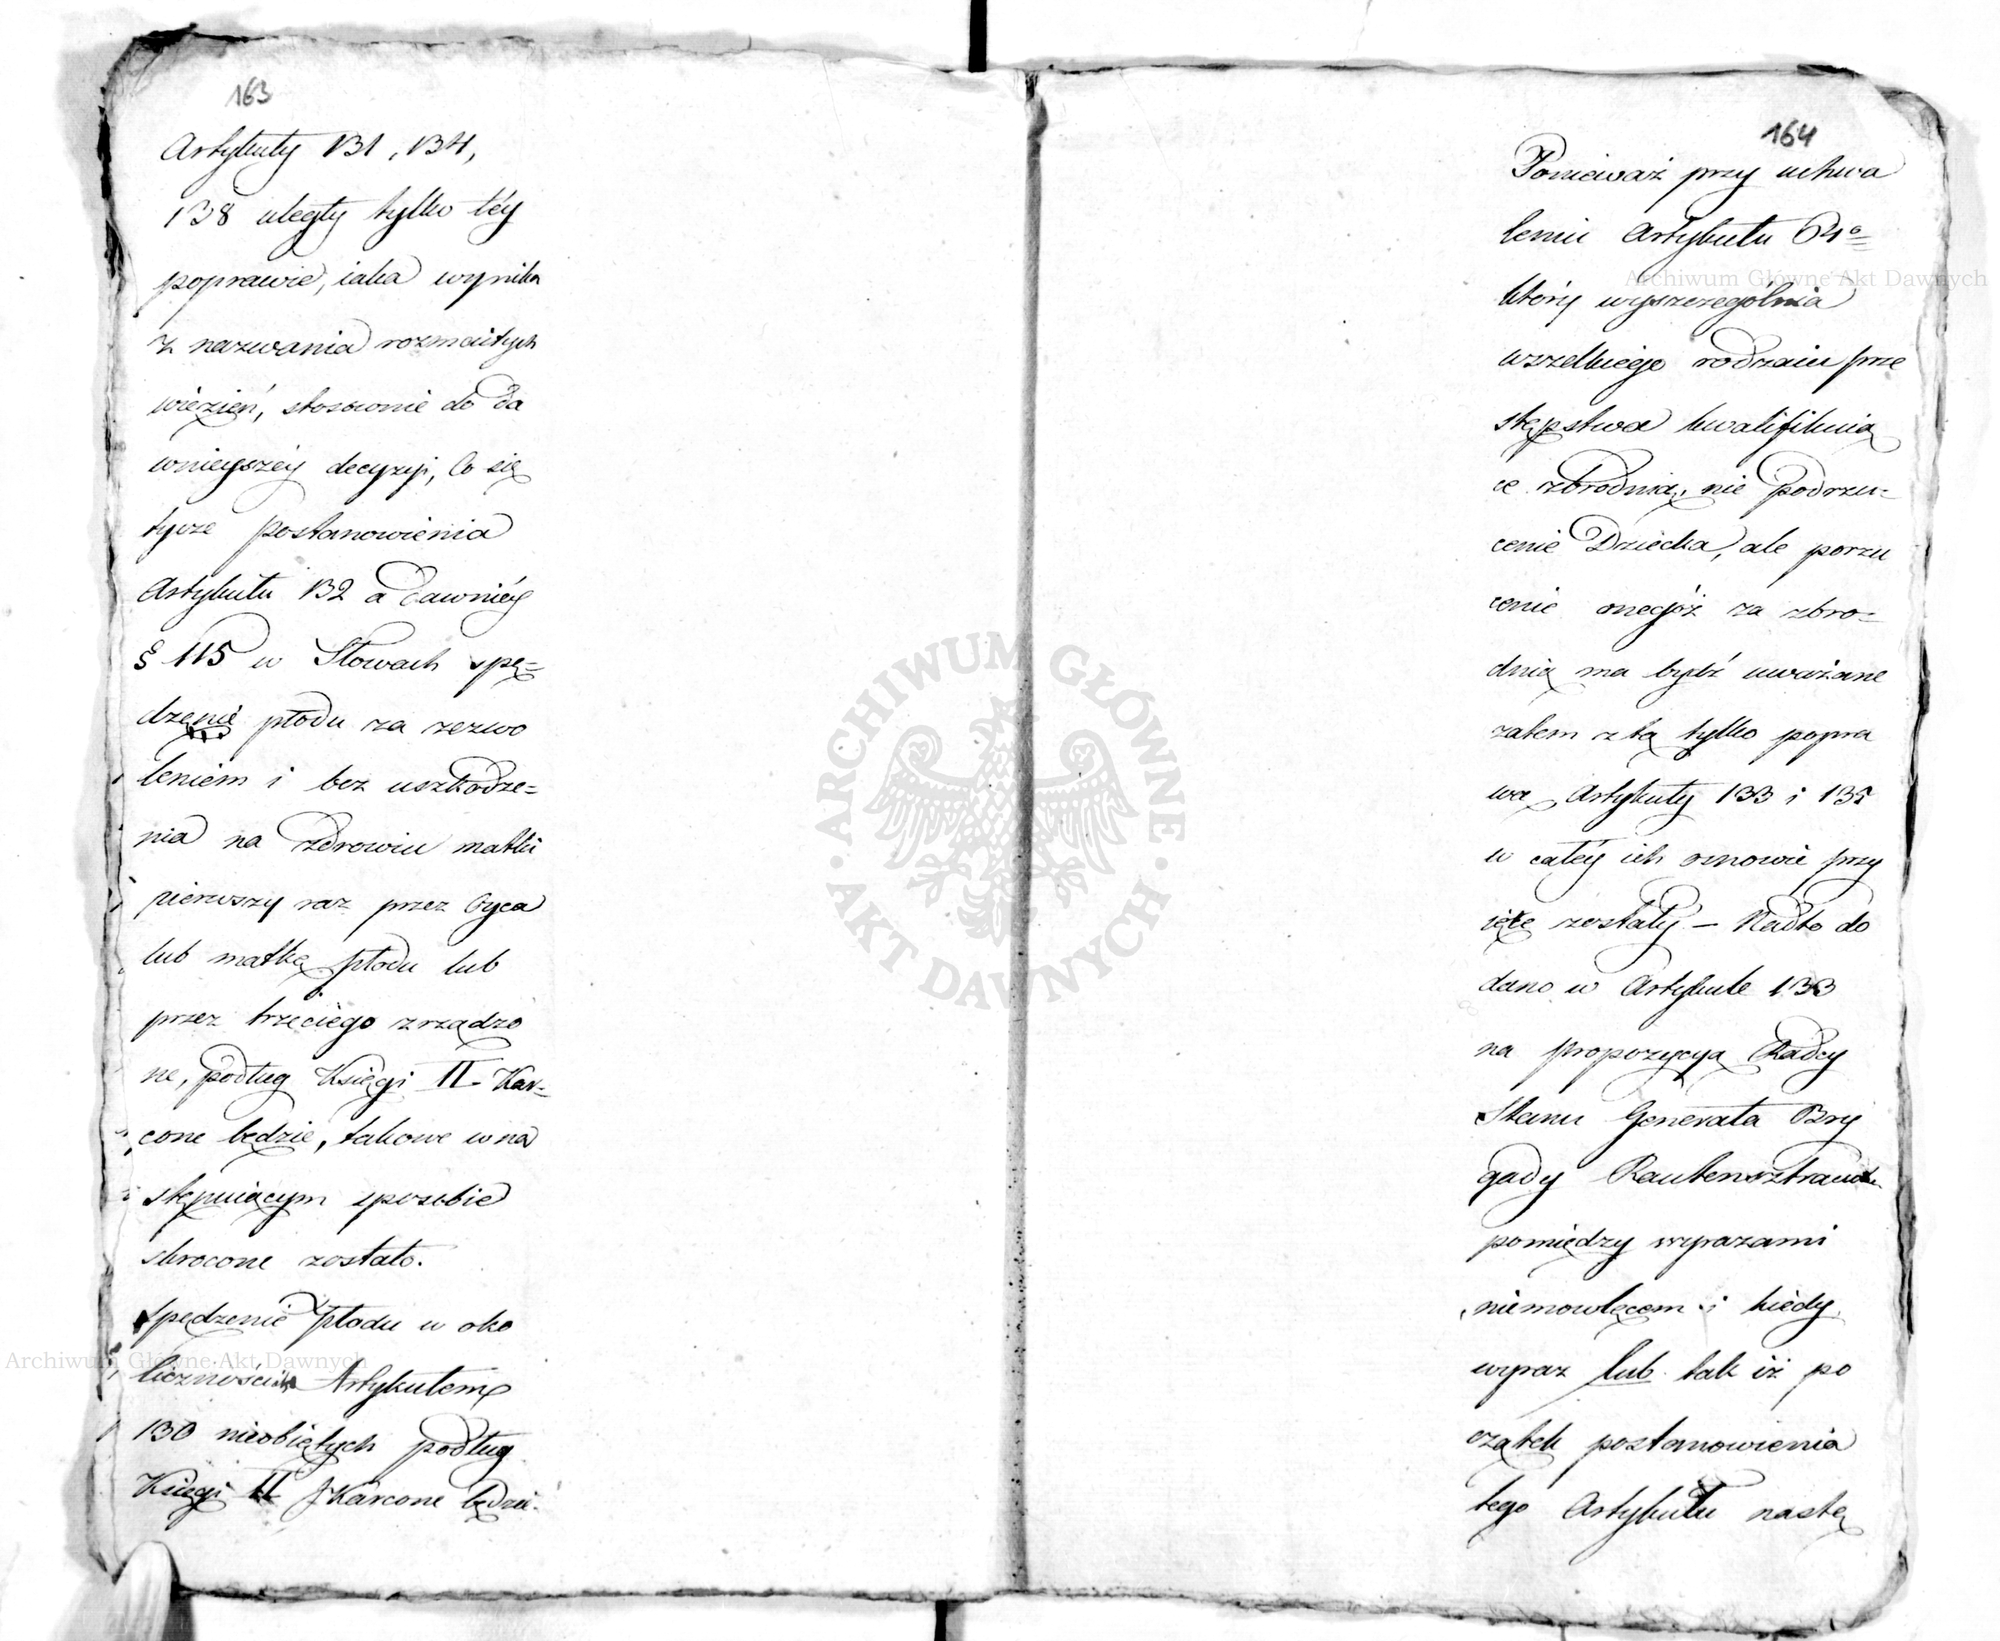 163
Artykuły 131, 134,
138 uległy tylko téy
poprawie, iaka wynika
z nazwania rozmaitych
więzień, stosownie do da
wnieyszéy decyzyi, Co się
tycze postanowienia
Artykułu 132 a dawniéy
§ 115 w Słowach spę=
dzenie płodu za zezwo
leniem i bez uszkodze=
nia na zdrowiu matki
pierwszy raz przez Oyca
lub matkę płodu lub
przez trzeciego zrządzo
ne, podług Księgi II. Kar=
cone będzie, takowe w na
stępuiącym sposobie
skrocone zostało.
Spędzenie płodu w oko
licznościach Artykułem
130 nieobiętych podług
Księgi II Karcone będzie.
164
Ponieważ przy uchwa
leniu Artykułu 64º
który wyszczególnia
wszelkiego rodzaiu prze
stępstwa kwalifikuią
ce zbrodnią, nie podrzu=
cenie Dziecka, ale porzu
cenie onegóż za zbro=
dnią ma bydź uważane
zatem z tą tylko popra
wą Artykuły 133 i 135
w całéy ich osnowie przy
ięte zostały – Nadto do
dano w Artykule 133
na propozycyą Radcy
Stanu Generała Bry
gady Rautensztrauch
pomiędzy wyrazami
niemowlęcem i kiedy
wyraz lub tak iż po
czątek postanowienia
tego Artykułu nastę
Archiwum Główne Akt Dawnych
Archiwum Główne Akt Dawnych
ARCHIWUM GŁÓWNE
AKT DAWNYCH